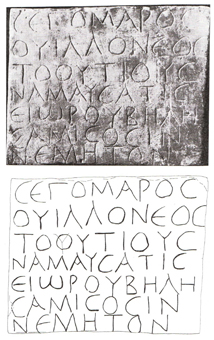 ϹΕΓΟΜΑΡΟϹ
ΟΥΙΛΛΟΝΕΟϹ
ΤΟΟΥΤΙΟΥϹ
ΝΑΜΑΥϹΑΤΙϹ
ΕΙѠΡΟΥΒΗΛΗ
ϹΑΜΙϹΟϹΙΝ
ΝΕΜΗΤΟΝ
ϹΕΓΟΜΑΡΟϹ
ΟΥΙΛΛΟΝΕΟϹ
ΤΟΟΥΤΙΟΥϹ
ΝΑΜΑΥϹΑΤΙϹ
ΕΙѠΡΟΥΒΗΛΗ
ϹΑΜΙϹΟϹΙΝ
ΝΕΜΗΤΟΝ